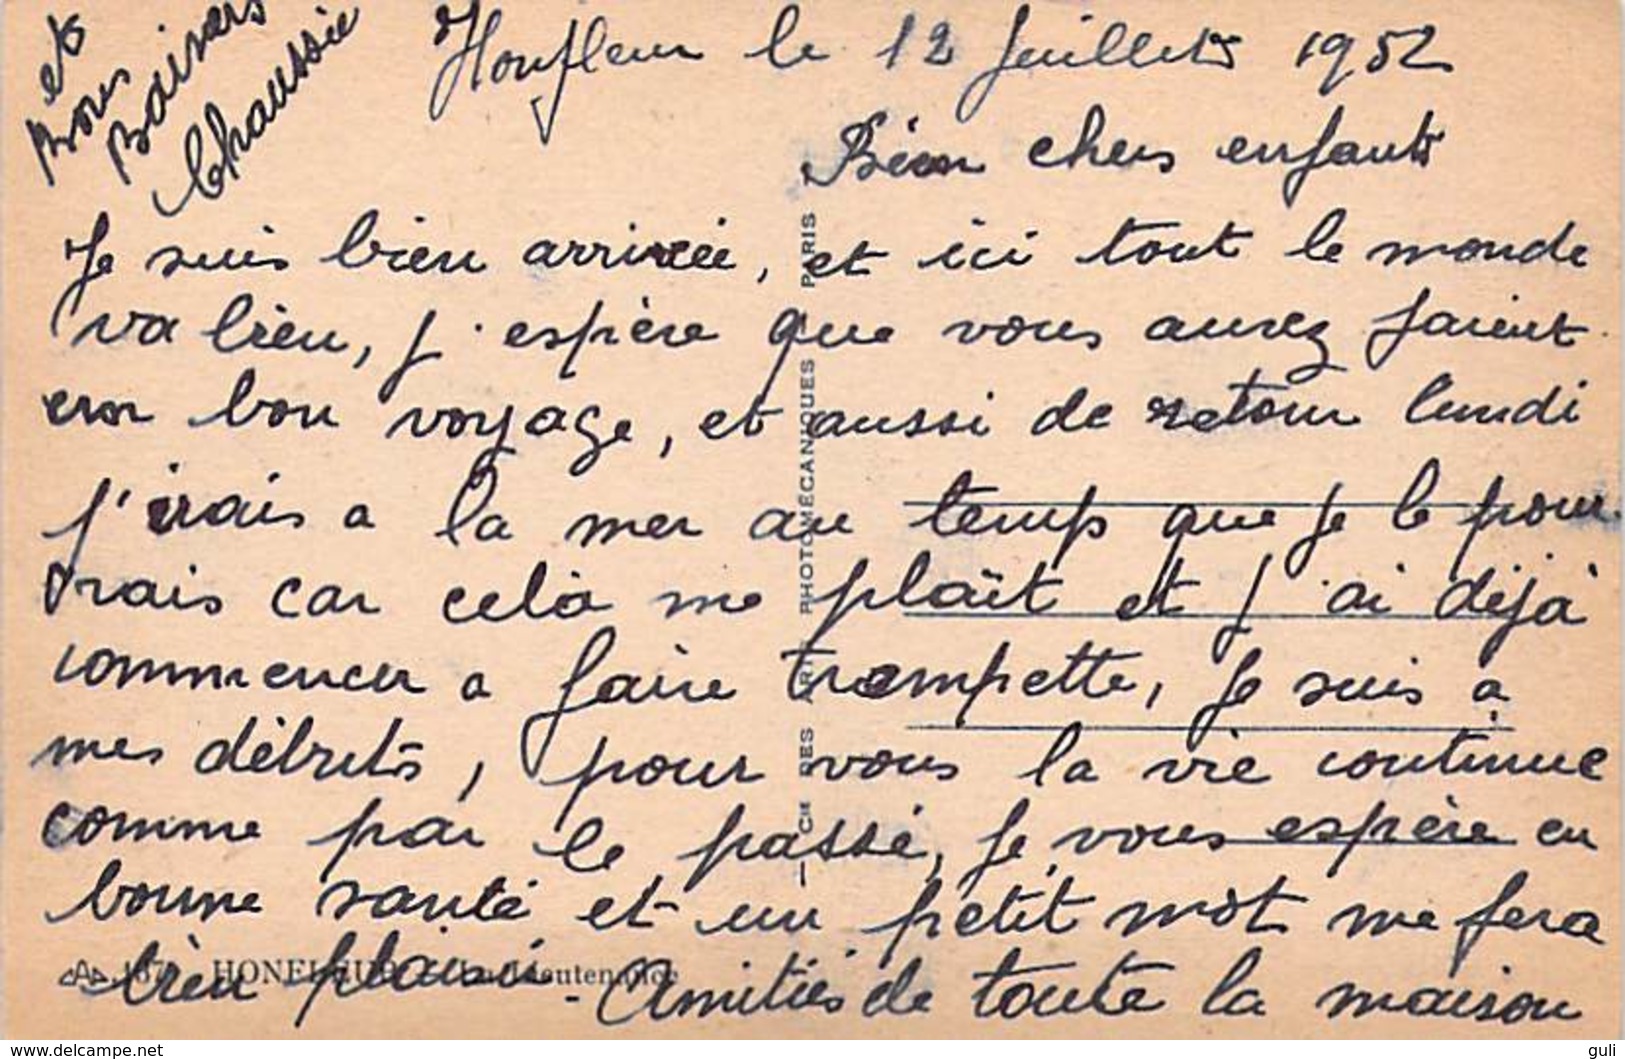 Honfleur le 12 Juillets 1952
Bien chers enfants
Je suis bien arrivée, et ici tout le monde
va bien, j'espère que vous aurez faient
un bon voyage, et aussi de retour lundi
j'irais a la mer au temps que je le pour
rais car celà me plaît et j'ai déjà
commencer a faire trempette, je suis a
mes débuts, pour vous la vie continue
comme par le passé, je vous espère en
bonne santé et un petit mot me fera
bien plaisi - Amitiés de toute la maison
et
Bons
Baisers
Chaussie
CIE DES ARTS PHOTOMÉCANIQUES PARIS
167 HONFLEUR - La Lieutenance
www.delcampe.net
guli